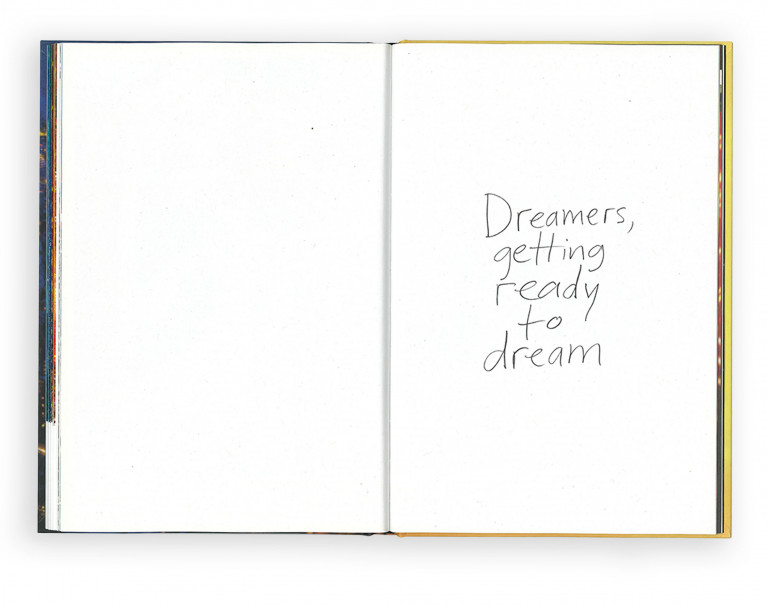 Dreamers,
getting
ready
to
dream